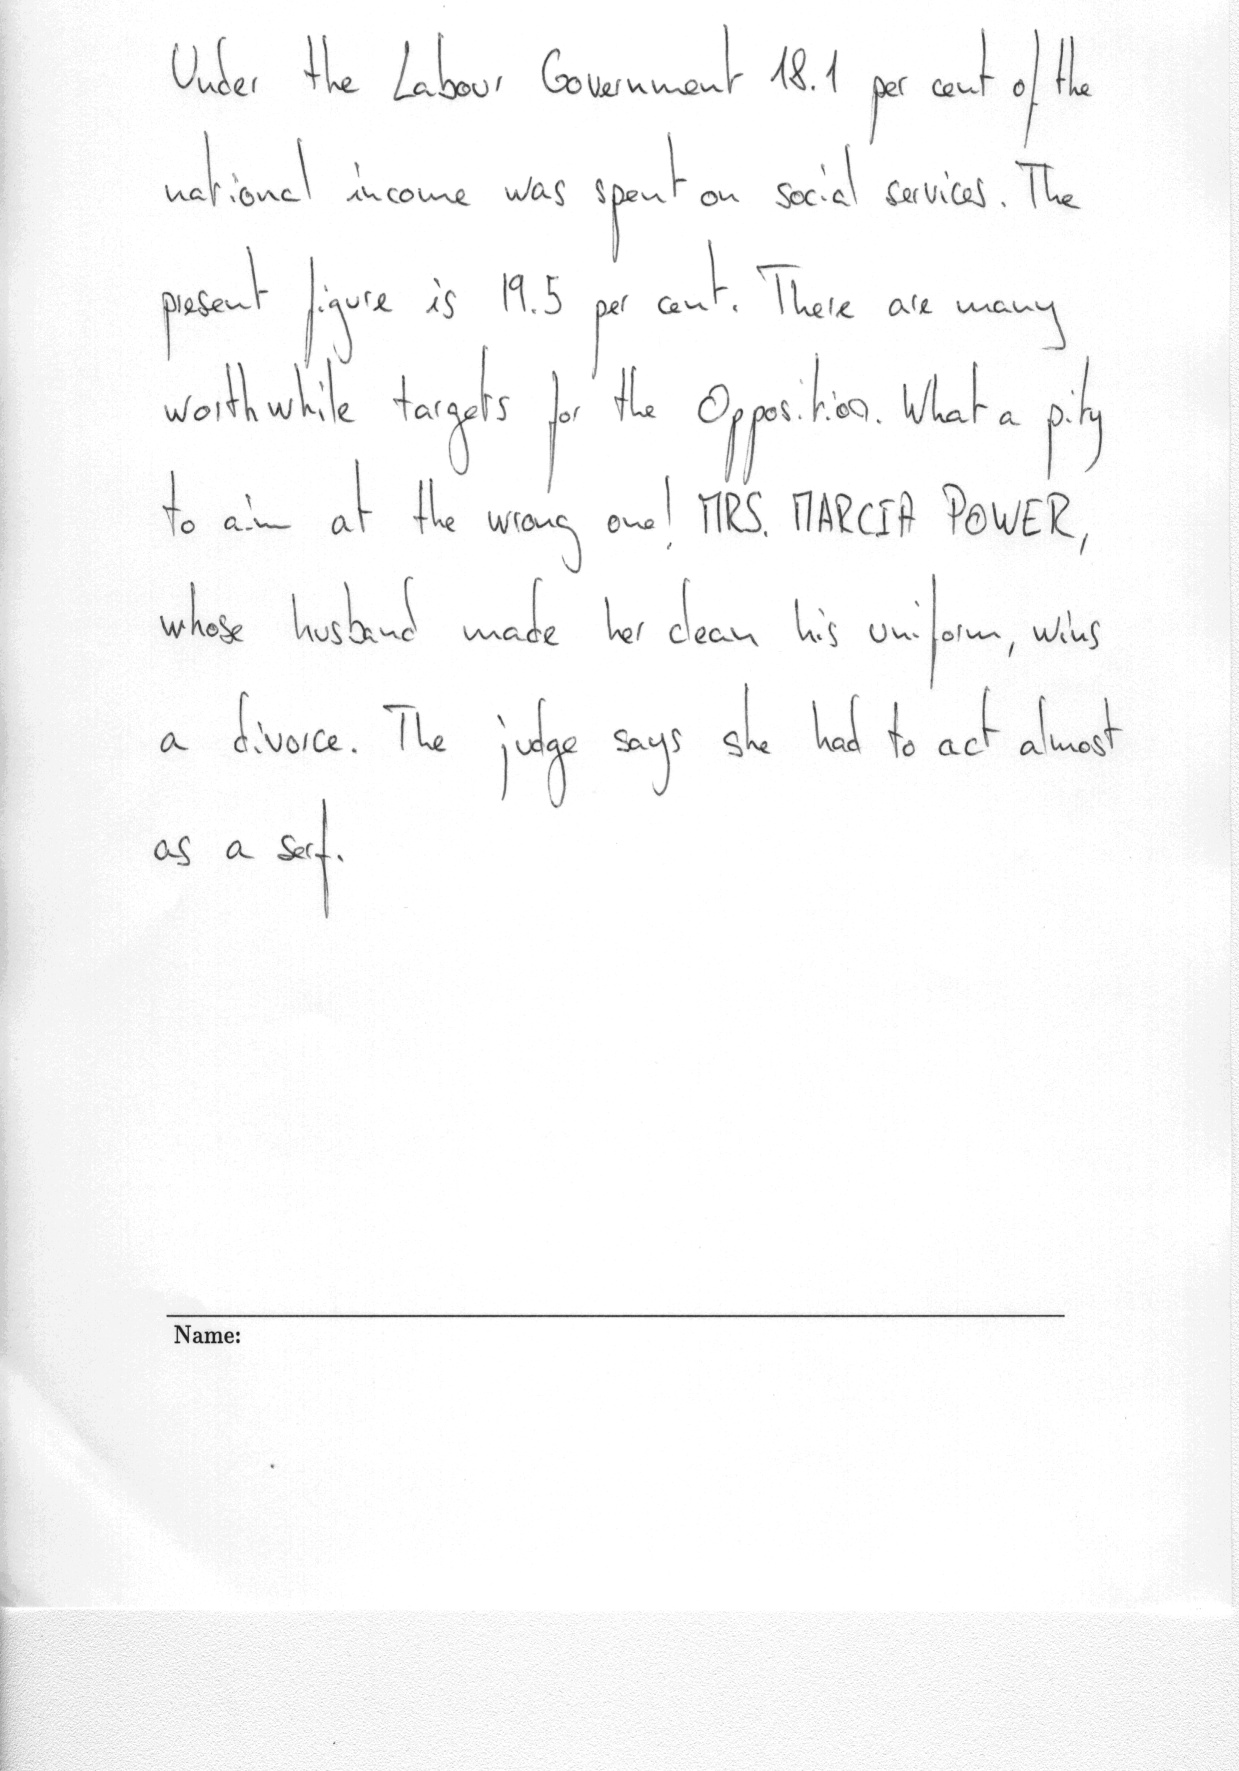 Under the Labour Government 18.1 per cent of the
national income was spent on social services. The
present figure is 19.5 per cent. There are many
worthwhile targets for the Opposition. What a pity
to aim at the wrong one! MRS. MARCIA POWER,
whose husband made her clean his uniform, wins
a divorce. The judge says she had to act almost
as a serf.
Name: